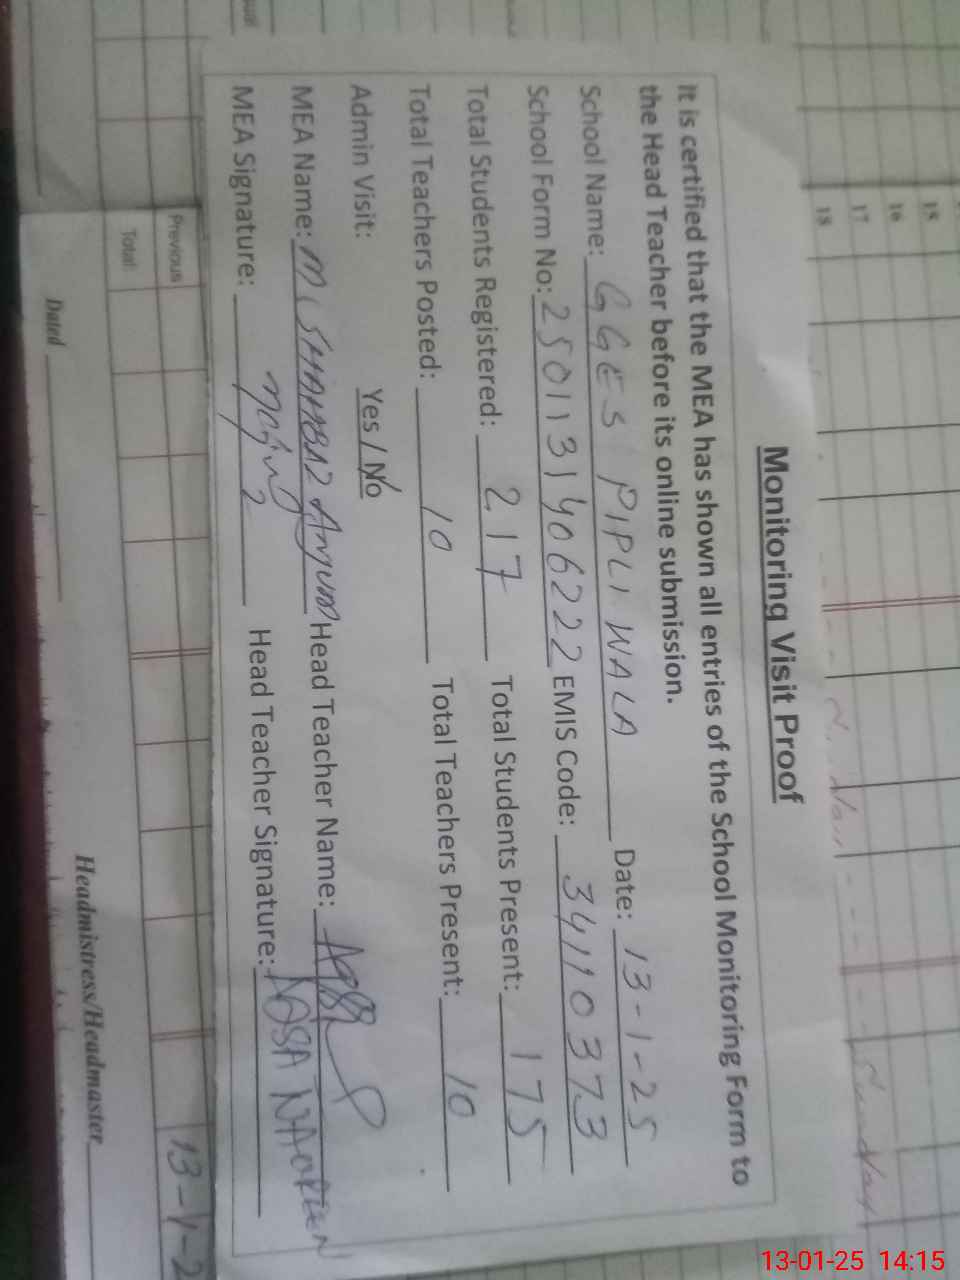 Monitoring Visit Proof
It is certified that the MEA has shown all entries of the School Monitoring Form to
the Head Teacher before its online submission.
School Name: GGES PIPLI WALA Date: 13-1-25
School Form No: 2501131406222 EMIS Code: 34110373
Total Students Registered: 217 Total Students Present: 175
Total Teachers Posted: 10 Total Teachers Present: 10
Admin Visit: Yes / No
MEA Name: M. SHAHBAZ Anjum Head Teacher Name:
MEA Signature: Head Teacher Signature: AQSA NAOREEN
15
16
17
18
Sunday
Previous
Total:
13-1-2
Dated
Headmistress/Headmaster
13-01-25 14:15